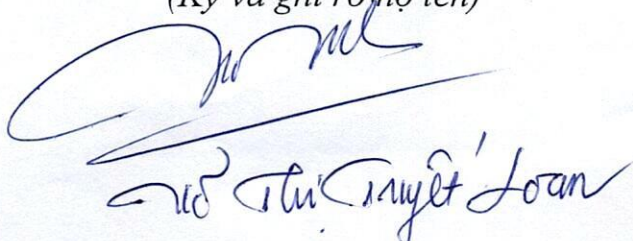 (Ký và ghi rõ họ tên)
Thị Tuyết Loan